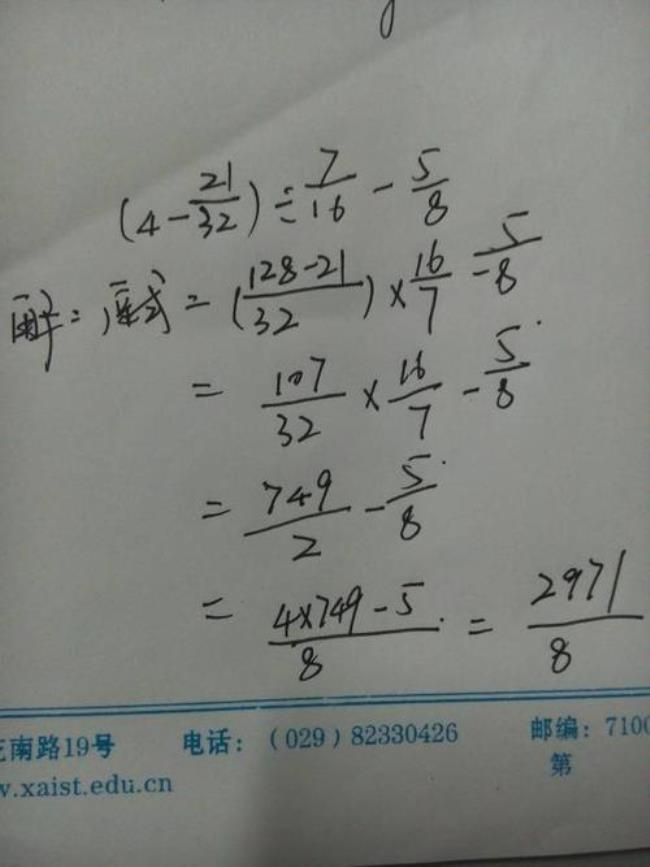 (4-21/32)÷7/16-5/8
解:原式=(128-21/32)×16/7-5/8
=107/32×16/7-5/8
=749/2-5/8
=4×749-5/8=2971/8
南路19号 电话:(029)82330426 邮编:7100
.xaist.edu.cn 第